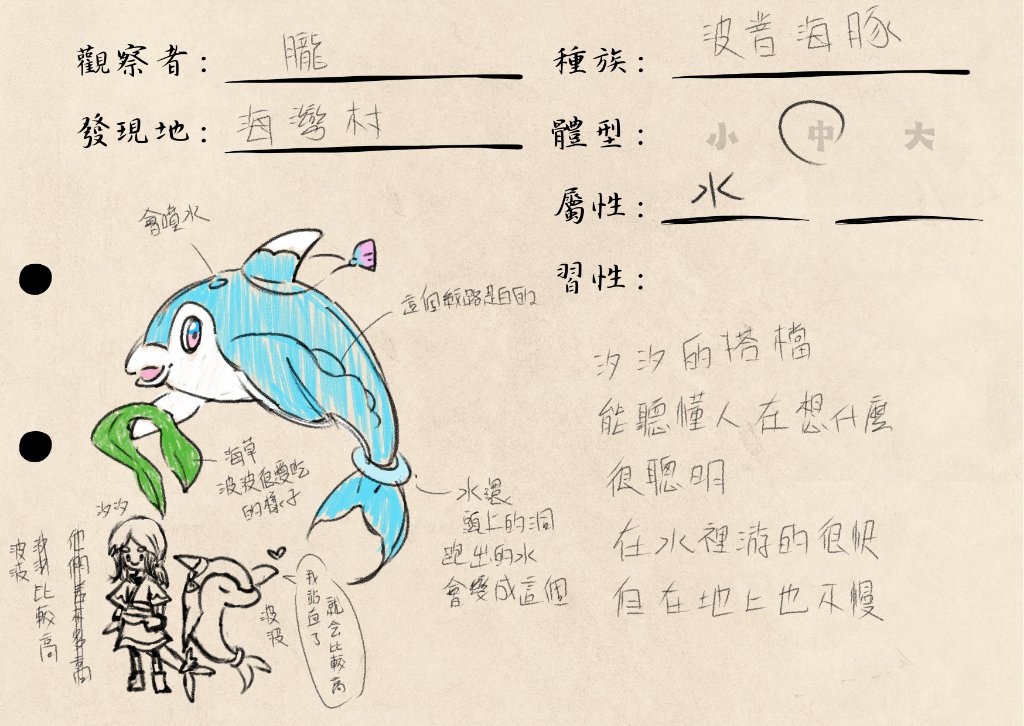 觀察者：朧
種族：波音海豚
發現地：海灣村
體型：小 中 大
屬性：水
習性：
汐汐的搭檔
能聽懂人在想什麼
很聰明
在水裡游的很快
但在地上也不慢
會噴水
這個紋路是白的
海草
波波很愛吃
的樣子
水還
頭上的洞
跑出的水
會變成這個
汐汐
波波
比較高
波波
我站直了
就会比較高